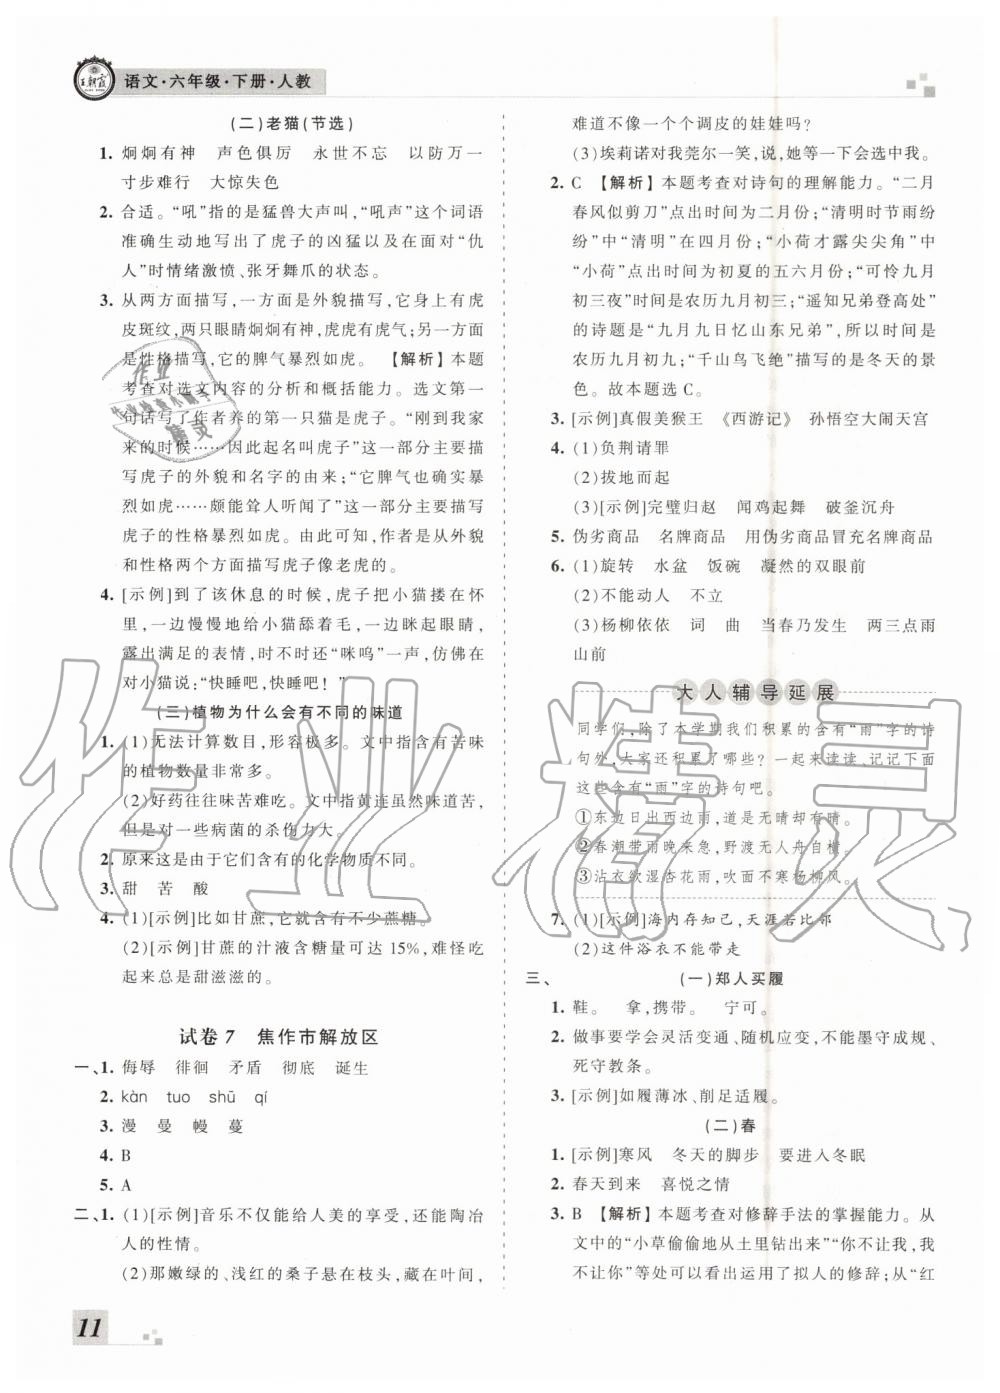 王朝霞
语文·六年级·下册·人教
(二)老猫(节选)
1. 炯炯有神 声色俱厉 永世不忘 以防万一
寸步难行 大惊失色
2. 合适。“吼”指的是猛兽大声叫,“吼声”这个词语
准确生动地写出了虎子的凶猛以及在面对“仇
人”时情绪激愤、张牙舞爪的状态。
3. 从两方面描写,一方面是外貌描写,它身上有虎
皮斑纹,两只眼睛炯炯有神,虎虎有虎气;另一方面
是性格描写,它的脾气暴烈如虎。 【解析】本题
考查对选文内容的分析和概括能力。选文第一
句话写了作者养的第一只猫是虎子。“刚到我家
来的时候……因此起名叫虎子”这一部分主要描
写虎子的外貌和名字的由来;“它脾气非常暴
烈如虎……颇能耸人听闻了”这一部分主要描写
虎子的性格暴烈如虎。由此可知,作者是从外貌
和性格两个方面描写虎子像老虎的。
4. [示例]到了该休息的时候,虎子把小猫搂在怀
里,一边慢慢地给小猫舔着毛,一边眯起眼睛,
露出满足的表情,时不时还“咪呜”一声,仿佛在
对小猫说:“快睡吧,快睡吧!”
(三)植物为什么会有不同的味道
1. (1)无法计算数目,形容极多。文中指含有苦味
的植物数量非常多。
(2)好药往往味苦难吃。文中指黄连虽然味道苦,
但是对一些病菌的杀伤力大。
2. 原来这是由于它们含有的化学物质不同。
3. 甜 苦 酸
4. (1)[示例]比如甘蔗,它就含有不少蔗糖。
(2)[示例]甘蔗的汁液含糖量可达 15%,难怪吃
起来总是甜滋滋的。
试卷 7 焦作市解放区
一、1. 侮辱 徘徊 矛盾 彻底 诞生
2. kàn tuo shū qí
3. 漫 曼 幔 蔓
4. B
5. A
二、1. (1)[示例]音乐不仅能给人美的享受,还能陶冶
人的性情。
(2)那嫩绿的、浅红的桑子悬在枝头,藏在叶间,
难道不像一个个调皮的娃娃吗?
(3)埃莉诺对我莞尔一笑,说,她等一下会选中我。
2. C 【解析】本题考查对诗句的理解能力。“二月
春风似剪刀”点出时间为二月份;“清明时节雨纷
纷”中“清明”在四月份;“小荷才露尖尖角”中
“小荷”点出时间为初夏的五六月份;“可怜九月
初三夜”时间是农历九月初三;“遥知兄弟登高处”
的诗题是“九月九日忆山东兄弟”,所以时间是
农历九月初九;“千山鸟飞绝”描写的是冬天的景
色。故本题选 C。
3. [示例]真假美猴王 《西游记》 孙悟空大闹天宫
4. (1)负荆请罪
(2)拔地而起
(3)[示例]完璧归赵 闻鸡起舞 破釜沉舟
5. 伪劣商品 名牌商品 用伪劣商品冒充名牌商品
6. (1)旋转 水盆 饭碗 凝然的双眼前
(2)不能动人 不立
(3)杨柳依依 词 曲 当春乃发生 两三点雨
山前
大人辅导延展
同学们,除了本学期我们积累的含有“雨”字的诗
句外,大家还积累了哪些?一起来读读、记记下面
这些含有“雨”字的诗句吧。
①东边日出西边雨,道是无晴却有晴。
②春潮带雨晚来急,野渡无人舟自横。
③沾衣欲湿杏花雨,吹面不寒杨柳风。
7. (1)[示例]海内存知己,天涯若比邻
(2)这件浴衣不能带走
三、 (一)郑人买履
1. 鞋。 拿,携带。 宁可。
2. 做事要学会灵活变通、随机应变,不能墨守成规、
死守教条。
3. [示例]如履薄冰、削足适履。
(二)春
1. [示例]寒风 冬天的脚步 要进入冬眠
2. 春天到来 喜悦之情
3. B 【解析】本题考查对修辞手法的掌握能力。从
文中的“小草偷偷地从土里钻出来”“你不让我,我
不让你”等处可以看出运用了拟人的修辞;从“红
11
作业精灵